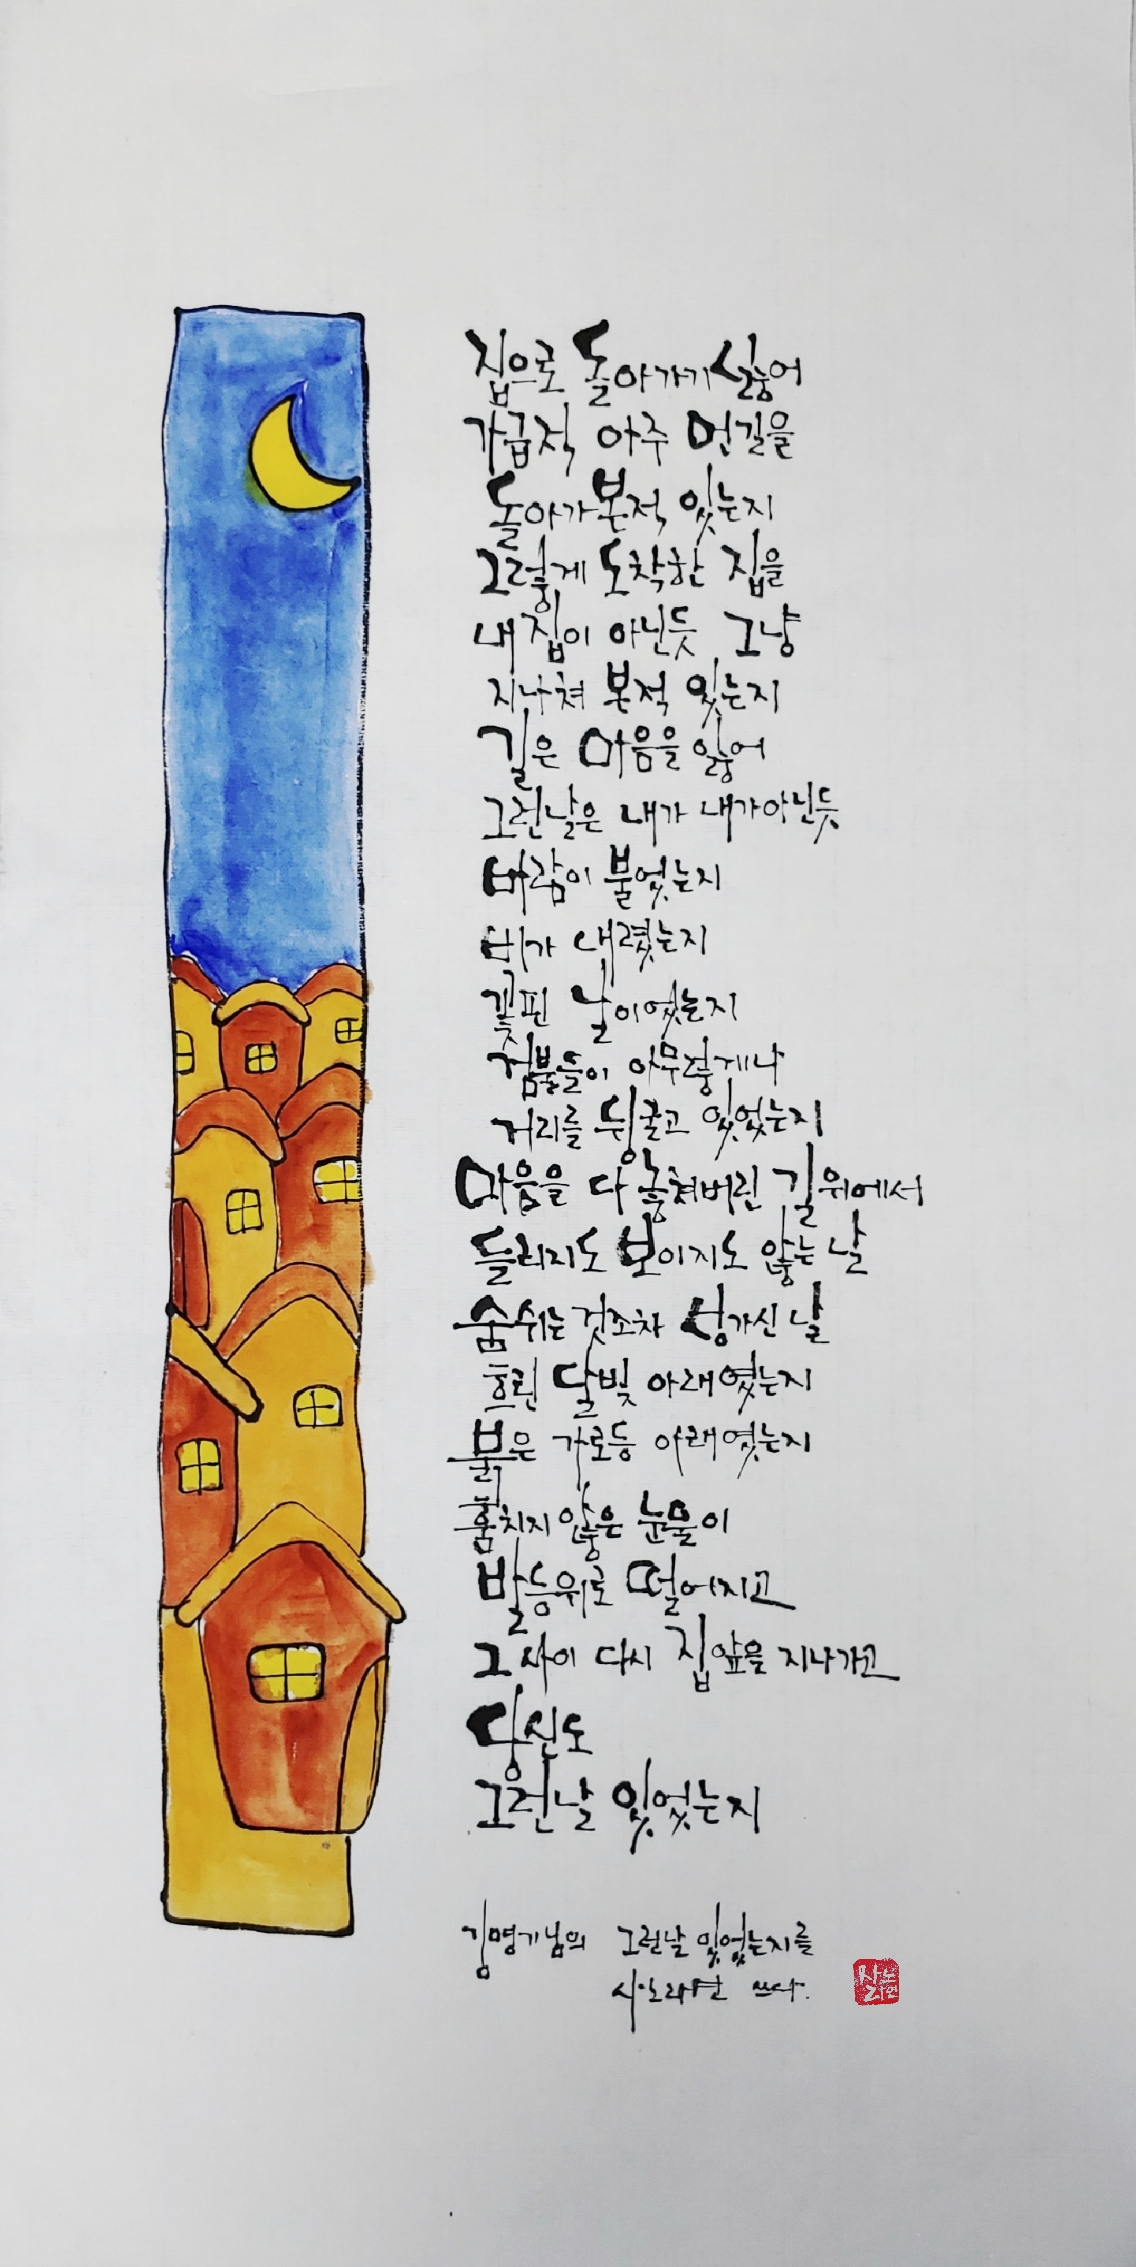 집으로 돌아가기 싫어
가급적 아주 먼길을
돌아가본적 있는지
그렇게 도착한 집을
내집이 아닌듯 그냥
지나쳐 본적 있는지
길은 마음을 잃어
그런날은 내가 내가아닌듯
바람이 불었는지
비가 내렸는지
꽃핀 날이었는지
검불들이 아무렇게나
거리를 뒹굴고 있었는지
마음을 다 놓쳐버린 길위에서
들리지도 보이지도 않는 날
숨쉬는 것조차 성가신 날
흐린 달빛 아래였는지
붉은 가로등 아래였는지
훔치지 않은 눈물이
발등위로 떨어지고
그 사이 다시 집앞을 지나가고
당신도
그런날 있었는지
김명기님의 그런날 있었는지를
쓰다.